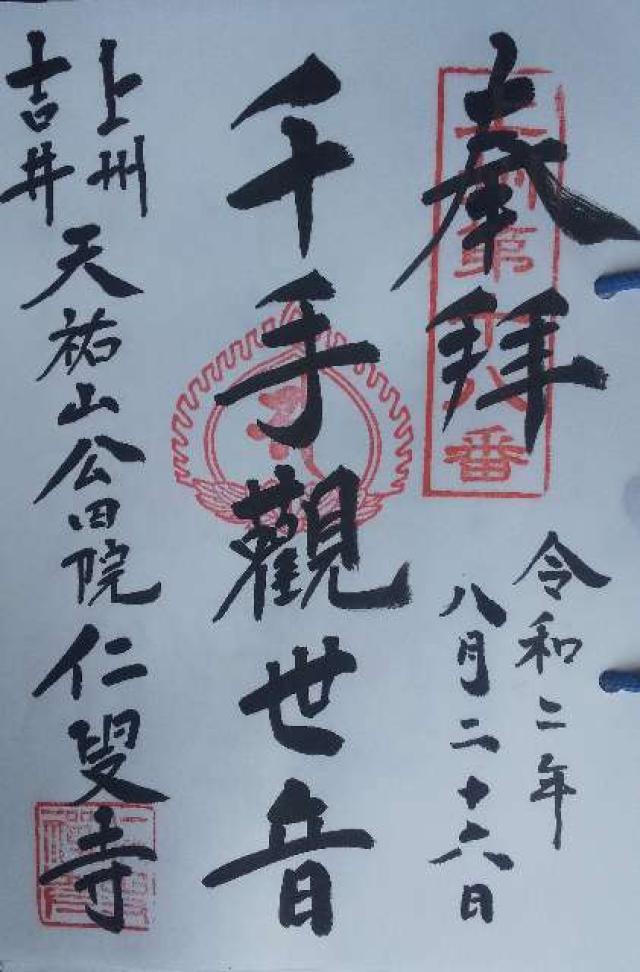 奉拝
令和二年
八月二十六日
千手觀世音
上州
吉井
天祐山公田院仁叟寺
番